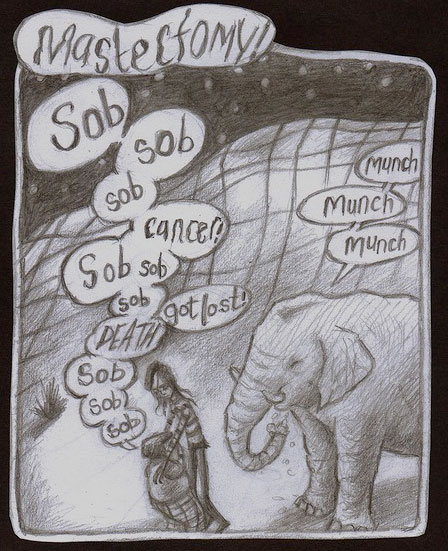 Mastectomy!
Sob
sob
sob
cancer!
Sob sob
sob
got lost!
DEATH
Sob
sob
sob
munch
munch
munch